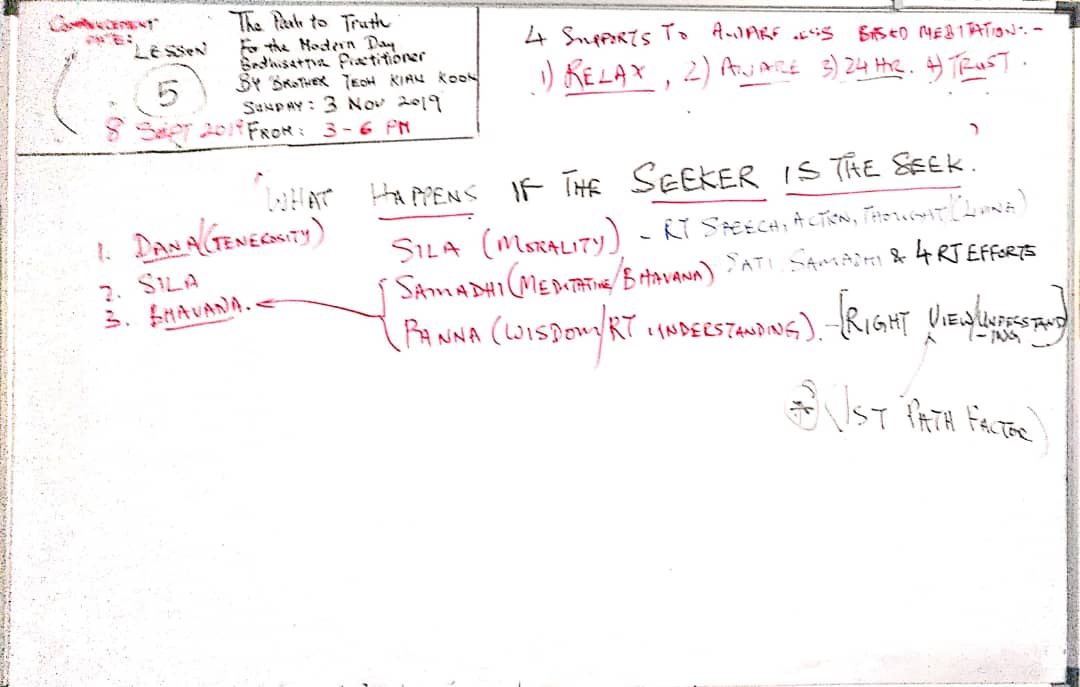 COMMENCEMENT
DATE:
LESSON
5
8 SEPT 2019
The Path to Truth
For the Modern Day
Bodhisattva Practitioner
BY BROTHER TEOH KIAN KOON
SUNDAY: 3 NOV 2019
FROM: 3-6 PM
4 SUPPORTS TO AWARE..ESS BASED MEDITATION:-
1) RELAX, 2) AWARE 3) 24 HR. 4) TRUST.
"WHAT HAPPENS IF THE SEEKER IS THE SEEK.
1. DANA (GENEROSITY)
2. SILA
3. BHAVANA.
SILA (MORALITY) - RT SPEECH, ACTION,
SAMADHI (MEDITATIVE/BHAVANA) SATI SAMADHI & 4 RT EFFORTS
PANNA (WISDOM/RT UNDERSTANDING). -[RIGHT VIEW/UNDERSTAND
-ING]
(1ST PATH FACTOR)